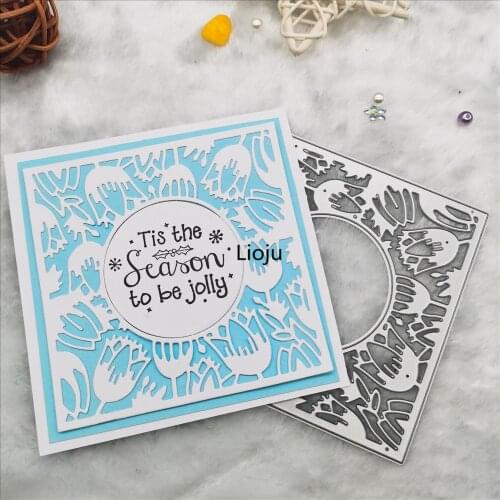 Tis the
Season
to be jolly
Lioju